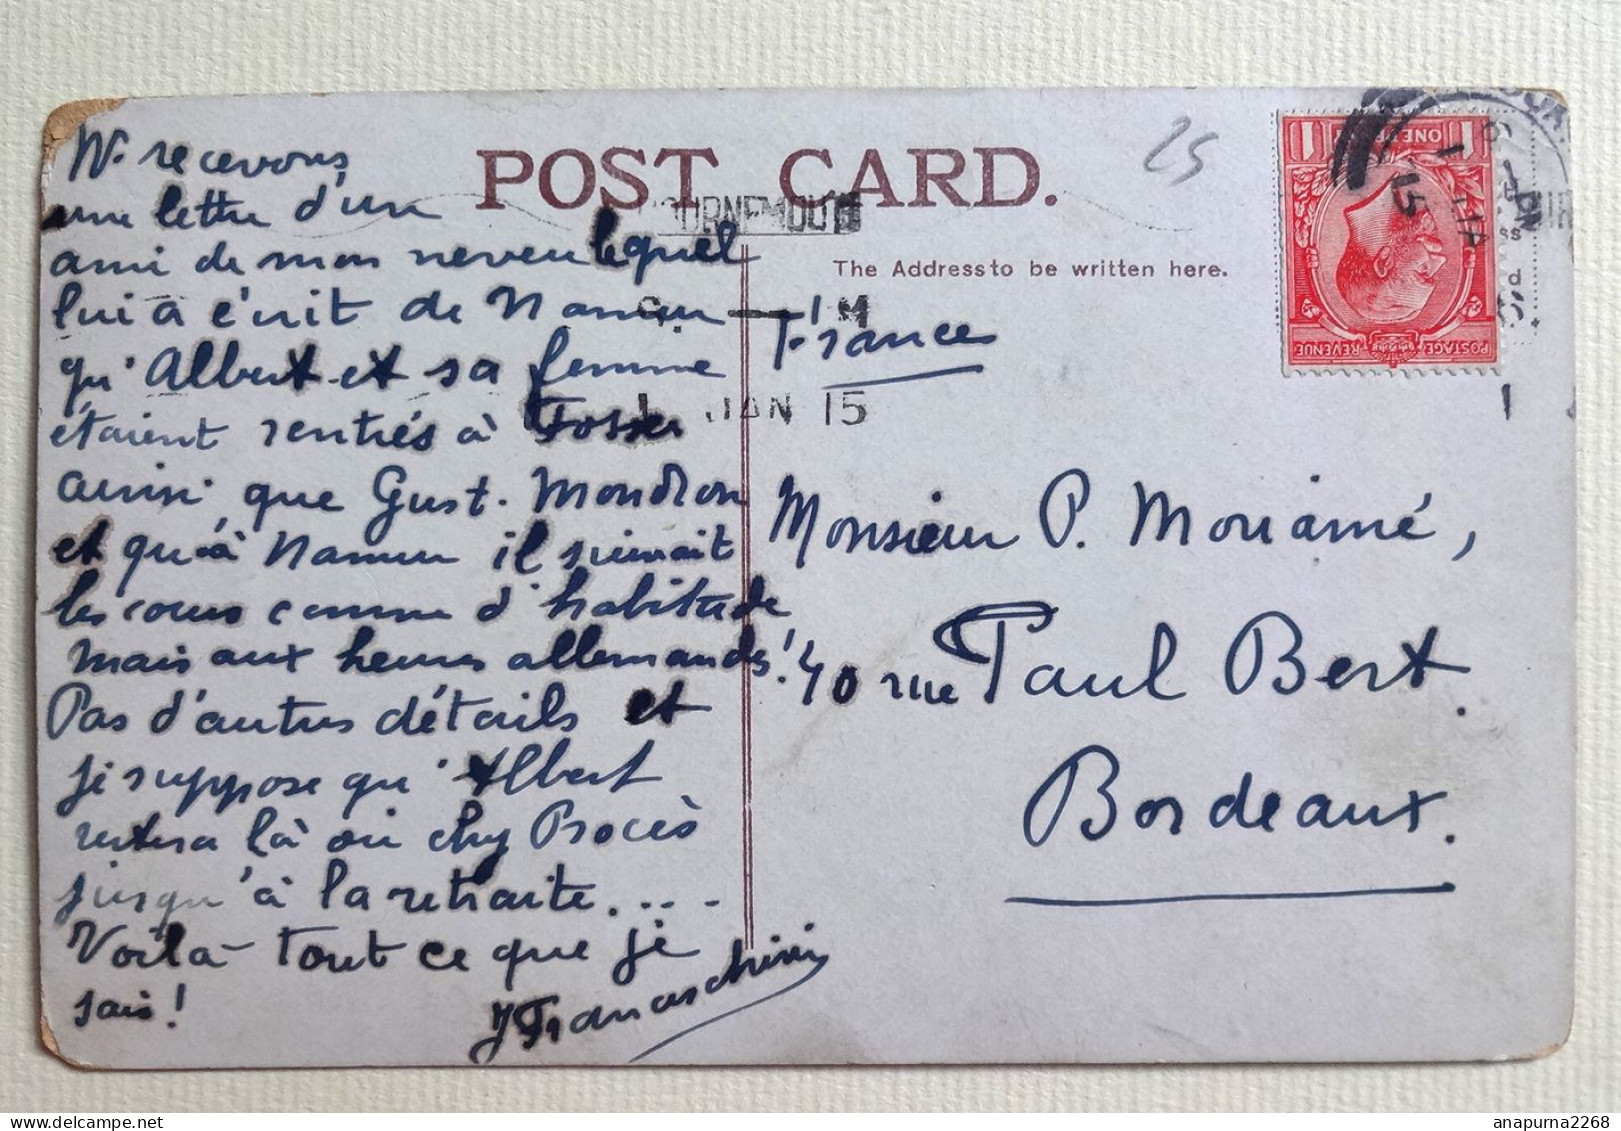 POST CARD.
25
BOURNEMOUTH
The Address to be written here.
M
1 JAN 15
ONE PENNY
POSTAGE REVENUE
N. recevons
une lettre d'un
ami de mon neveu lequel
lui a écrit de Namur
qu'Albert et sa femme
étaient rentrés à Fosses
ainsi que Gust. Mondron
et qu'à Namur il suivait
les cours comme d'habitude
mais aux heures allemandes!
Pas d'autres détails et
je suppose qu'Albert
restera là ou chez Procès
jusqu'à la retraite....
Voilà tout ce que je
sais!
France
Monsieur P. Moriamé,
40 rue Paul Bert.
Bordeaux.
anapurna2268